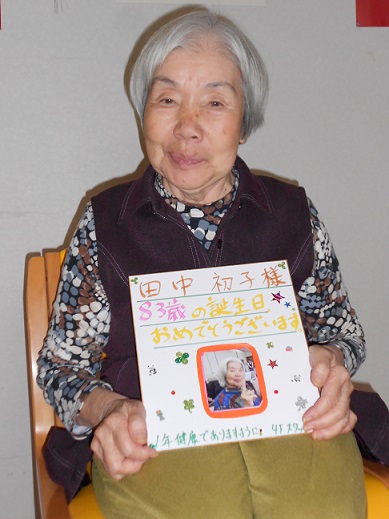 田中 初子様
83歳の誕生日
おめでとうございます
1年健康でありますように!